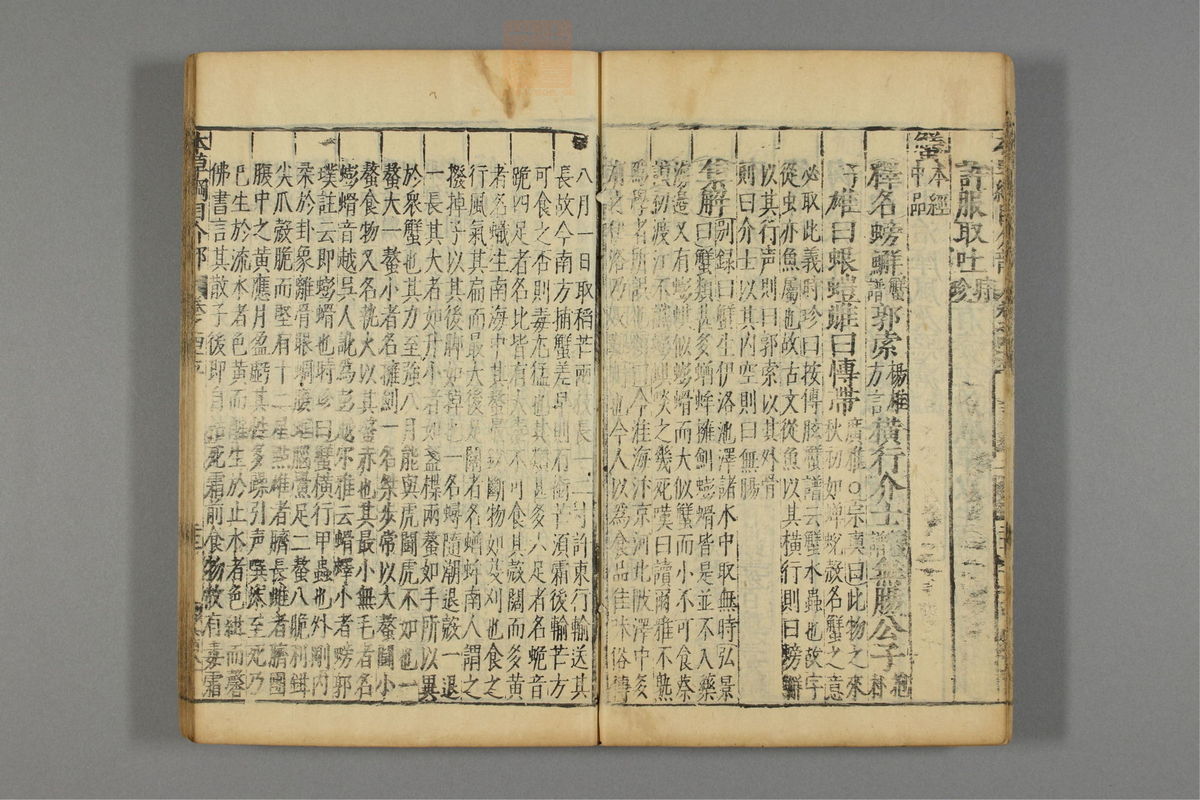 許服取吐
蟹本經中品
釋名螃蟹蟹譜郭索揚雄方言橫行介士蟹譜無腸公子抱朴
雄曰蜋螘雌曰博帶廣雅○宗奭曰此物之來
秋初如蟬蛻故名蟹之意
必取此義時珍曰按傅肱蟹譜云蟹水蟲也故字
從虫亦魚屬也故古文從魚以其橫行則曰螃蟹
以其行声則曰郭索以其外骨
則曰介士以其內空則曰無腸
集解別錄曰蟹生伊洛池澤諸水中取無時弘景
曰蟹類甚多蝤蛑擁劍蟛螖皆是並不入藥
又有蟛蜞似蟛螖而大似蟹而小不可食蔡
謨初渡江不識蟛蜞啖之幾死嘆曰讀爾雅不熟
今淮海汴京河北陂澤中
今人以為食品佳味俗傳
八月一日取稻芒兩枝長一二寸許東行輸送其
長故今南方捕蟹差早則有銜芒須霜後輸芒方
可食之否則毒尤猛也其類甚多六足者名蛫音
跪四足者名北皆有大毒不可食其殼闊而多黃
者名蠘生南海中其螯最銳斷物如芟刈也食之
行風氣其扁而最大後足闊者名蝤蛑南人謂之
撥掉子以其後脚如棹也一名蟳隨潮退殼一退
一長其大者如升小者如盞楪兩螯如手所以異
於衆蟹也其力至強八月能與虎鬪虎不如也一
螯大一螯小者名擁劍一名桀步常以大螯鬪小
螯食物又名執火以其螯赤也其最小無毛者名
蟛螖音越吳人訛為彭越爾雅云螖蠌小者蟧郭
璞註云即蟛螖也時珍曰蟹橫行甲蟲也外剛內
柔於卦象離骨眼蜩腹䖯腦鱟足二螯八跪利鉗
尖爪殼脆而堅有十二星點雄者臍長雌者臍團
腹中之黃應月盈虧其性多躁引声噀沫至死乃
已生於流水者色黃而腥生於止水者色紺而馨
佛書言其散子後即自枯死霜前食物故有毒霜
本草綱目介部